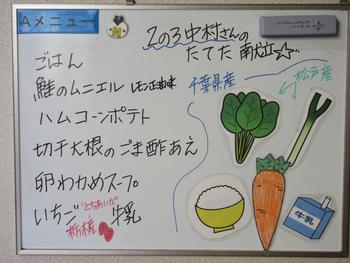 Aメニュー
N
2の3中村さんの
たてた献立☆
ごはん
鮭のムニエル レモン正油味
ハムコーンポテト
切干大根のごま酢あえ
卵わかめスープ
いちご"とちあいか"牛乳
栃木産
千葉県産
松戸産
牛乳